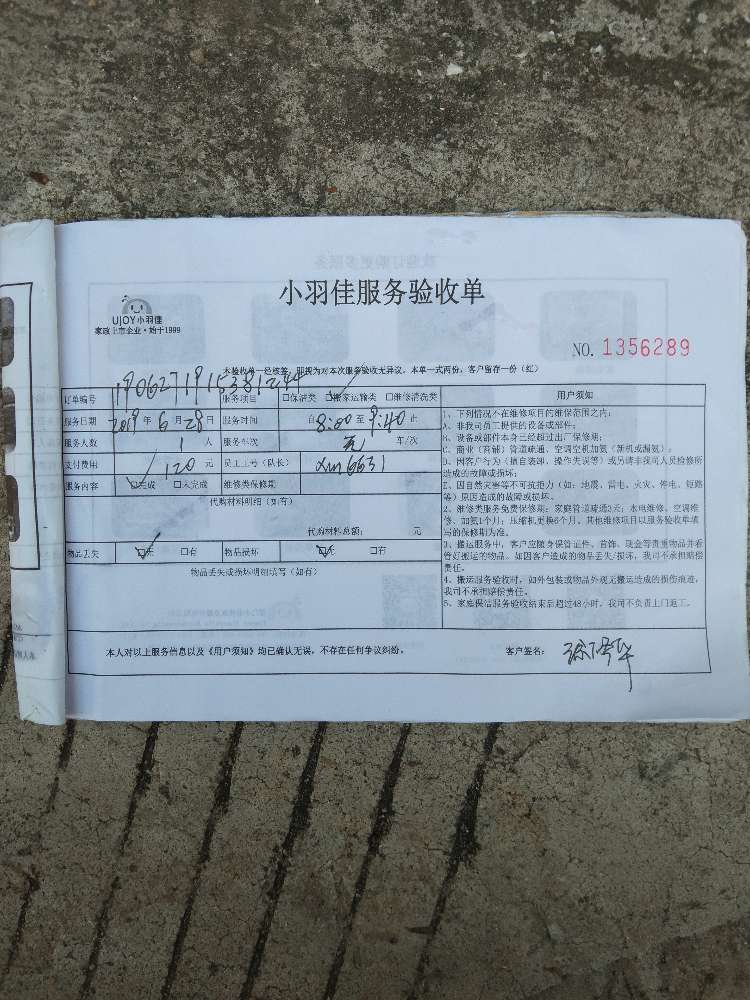 小羽佳服务验收单
UJOY小羽佳
家政上市企业·始于1999
NO. 1356289
本验收单一经核签，即视为对本次服务验收无异议。本单一式两份，客户留存一份（红）
订单编号 1906271915381244 服务项目 □保洁类 □搬家运输类 □维修清洗类
服务日期 2019 年 6 月 28 日 服务时间 自 8:00 至 9:40 止
服务人数 1 人 服务车次 无 车/次
支付费用 120 元 员工工号（队长） xm6631
服务内容 □完成 □未完成 维修类保修期
代购材料明细（如有）
代购材料总额： 元
物品丢失 □无 □有 物品损坏 □无 □有
物品丢失或损坏明细填写（如有）
用户须知
1、下列情况不在维修项目的维保范围之内：
A、非我司员工提供的设备或部件；
B、设备或部件本身已经超过出厂保修期；
C、商业（商铺）管道疏通、空调空机加氨（新机或漏氨）；
D、因客户行为（擅自装卸、操作失误等）或另请非我司人员检修所
造成的故障或损坏；
E、因自然灾害等不可抗拒力（如：地震、雷电、火灾、停电、短路
等）原因造成的故障或损坏。
2、维修类服务免费保修期：家庭管道疏通3天；水电维修、空调维
修、加氨1个月；压缩机更换6个月。其他维修项目以服务验收单填
写的保修期为准。
3、搬运服务中，客户应随身保管证件、首饰、现金等贵重物品并看
管好搬运的物品。如因客户造成的物品丢失/损坏，我司不承担赔偿
责任。
4、搬运服务验收时，如外包装或物品外观无搬运造成的损伤痕迹，
我司不承担赔偿责任。
5、家庭保洁服务验收结束后超过48小时，我司不负责上门返工。
本人对以上服务信息以及《用户须知》均已确认无误，不存在任何争议纠纷。 客户签名：